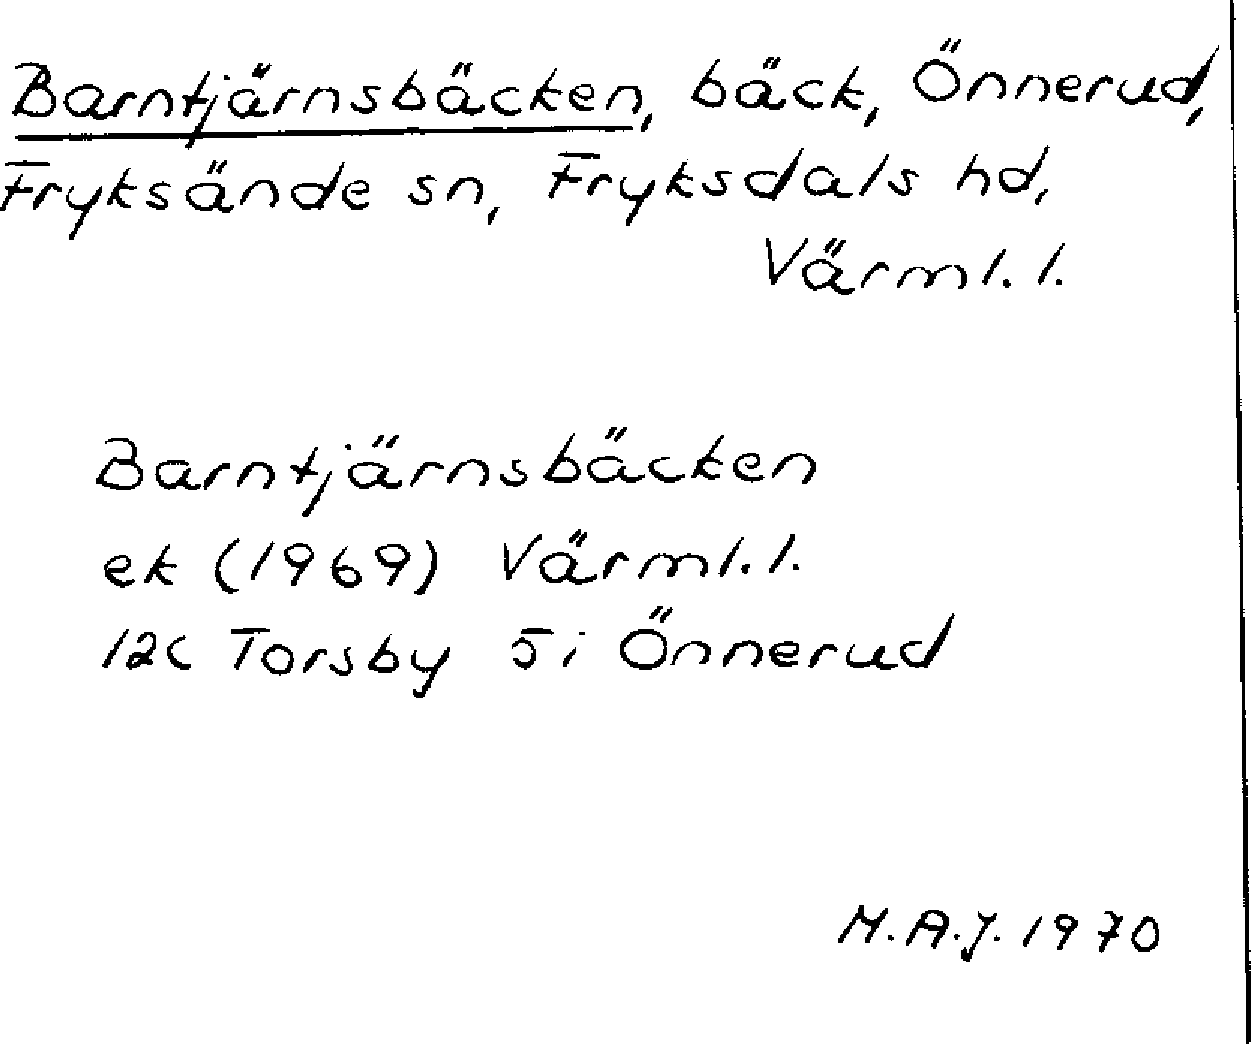 Barntjärnsbäcken, bäck, Önnerud,
Fryksände sn, Fryksdals hd,
Värml. l.
Barntjärnsbäcken
ek (1969) Värml. l.
12c Torsby 5i Önnerud
M.A.J. 1970